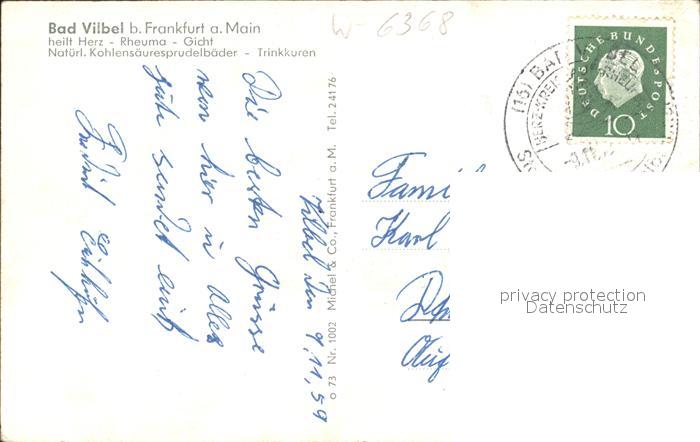 Bad Vilbel b. Frankfurt a. Main
heilt Herz - Rheuma - Gicht
Natürl. Kohlensäuresprudelbäder - Trinkkuren
W-6368
DEUTSCHE BUNDESPOST
10
(16) BAD
HERZ-KREIS
Vilbel den 9.11.59
Die besten Grüsse
von hier in alles
gute sendet euch
o 73 Nr. 1002 Michel & Co., Frankfurt a. M. Tel. 24176
Famil
Karl
privacy protection
Datenschutz